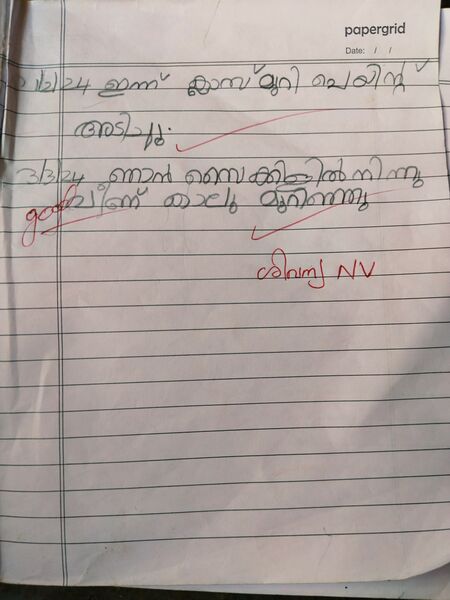 papergrid
Date: / /
21/2/24 ഇന്ന് ക്ലാസ്മുറി പെയിന്റ്
അടിച്ചു.
3/3/24 ഞാൻ സൈക്കിളിൽ നിന്നു
good വീണ് കാലു മുറിഞ്ഞു
ശിവന്യ NV